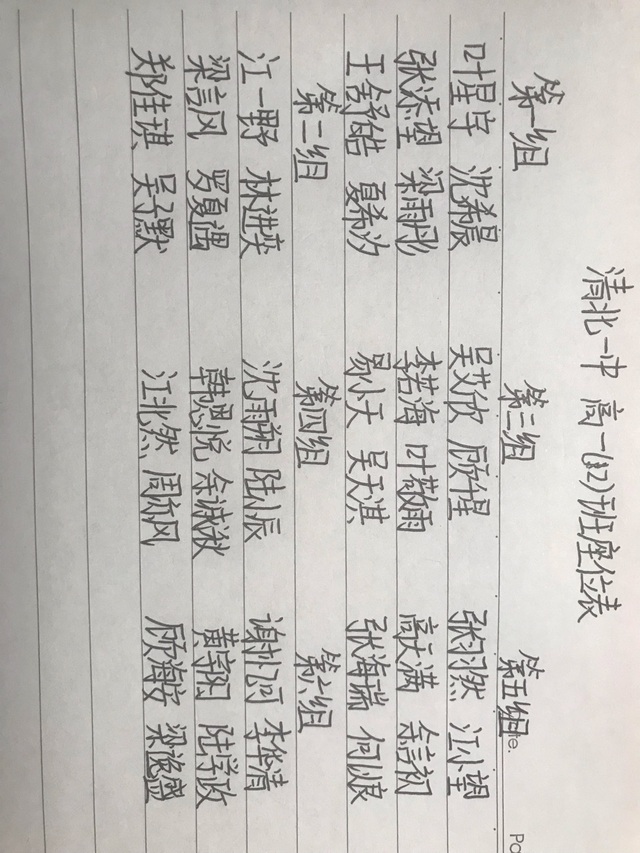 清北一中 高一(12)班座位表
第一组 第三组 第五组
叶星宇 沈希晨 吴艾欣 顾惺 张羽然 江小望
张添望 梁雨彤 李若海 叶敬雨 高天满 余言初
王舒皓 夏希汐 易小天 吴天淇 张海瑞
第二组 第四组 第六组
江一野 林进奕 沈雨朔 陆小辰 李华清
梁言风 罗夏遇 韩思悦 余诚秋 陆学政
郑佳琪 吴子默 江北然 周亦风 顾海安 梁逸盛